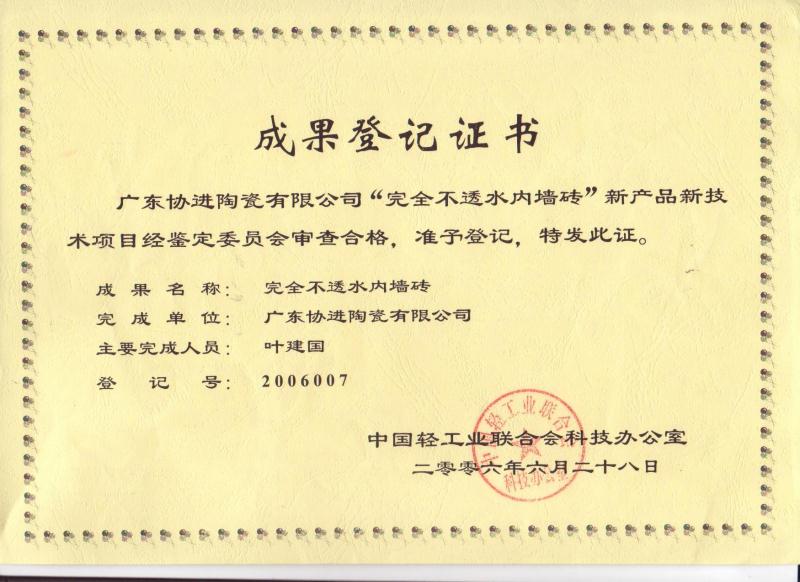 成果登记证书
广东协进陶瓷有限公司“完全不透水内墙砖”新产品新技
术项目经鉴定委员会审查合格，准予登记，特发此证。
成果名称：完全不透水内墙砖
完成单位：广东协进陶瓷有限公司
主要完成人员：叶建国
登记号：2006007
中国轻工业联合会科技办公室
二零零六年六月二十八日
中国轻工业联合会
科技办公室